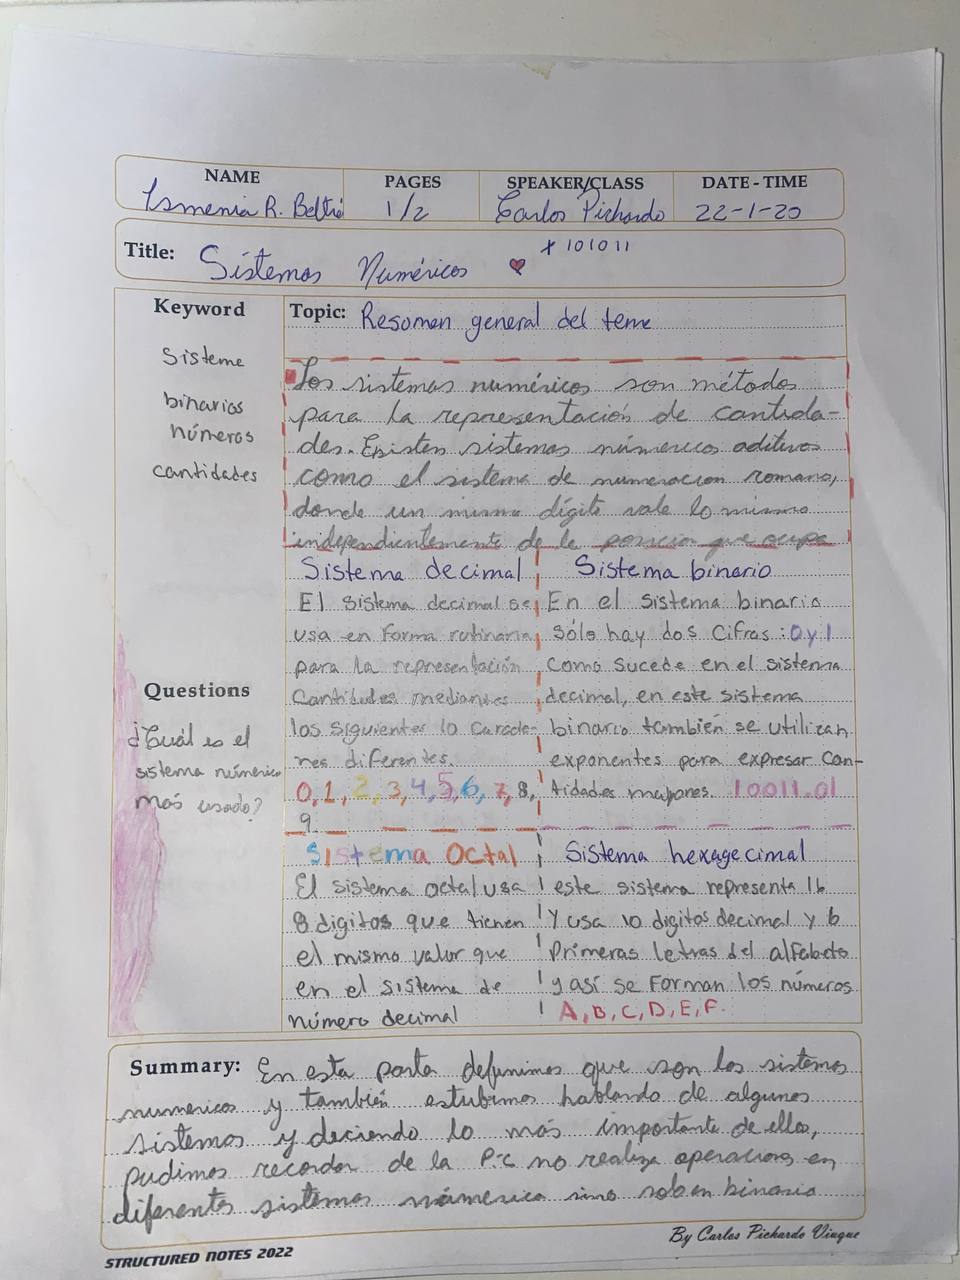 NAME
PAGES
SPEAKER/CLASS
DATE - TIME
Ismenia R. Beltré
1/2
Carlos Pichardo
22-1-20
Title: Sístemas Numéricos
+ 101011
Keyword
Sisteme
binarios
números
cantidades
Topic: Resumen general del teme
Los sistemas numéricos son métodos
para la representación de cantida-
des. Existen sistemas númerico aditivos
como el sistema de numeracion romano,
donde un mismo dígito vale lo mismo
independientemente de la posicion que ocupa
Sistema decimal
El sistema decimal se
usa en forma rutinaria
para la representación
Cantidades mediantes
los siguientes 10 caracte-
res diferentes.
0,1,2,3,4,5,6,7,8,
9.
Sistema binario
En el sistema binario
sólo hay dos cifras: 0 y 1
Como sucede en el sistema
decimal, en este sistema
binario también se utilizan
exponentes para expresar can-
tidades mayores. 10011.01
Questions
¿Cuál es el
sistema numérico
más usado?
Sistema Octal
El sistema octal usa
8 digitos que tienen
el mismo valor que
en el sistema de
número decimal
Sistema hexagecimal
este sistema representa 16
y usa 10 digitos decimal y 6
Primeras letras del alfabeto
y así se forman los números
A, B, C, D, E, F.
Summary: En esta parte definimos que son los sistemas
numericos y también estubimos hablando de algunos
sistemas y deciendo lo más importante de ellos,
pudimos recordar de la P.C no realiza operaciones en
diferentes sistemas númerico sino solo en binario
STRUCTURED NOTES 2022
By Carlos Pichardo Viuque